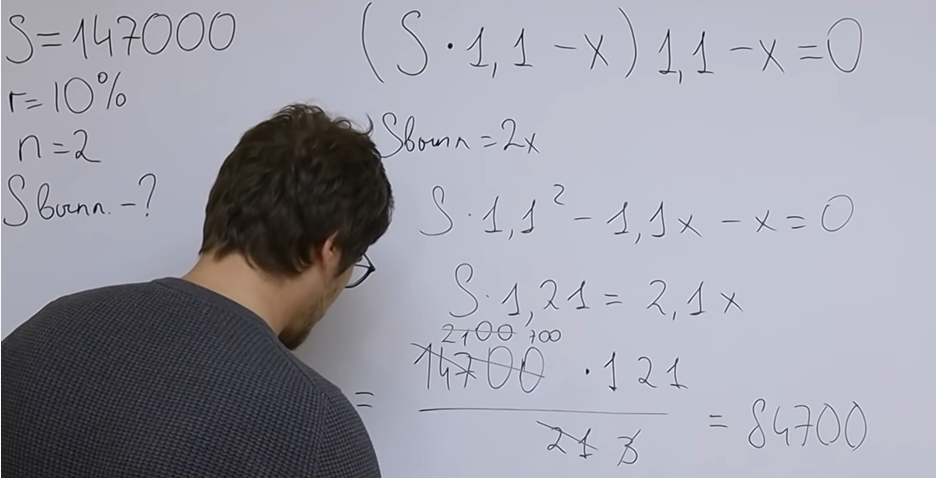 S=147000
r=10%
n=2
Sвыпл. -?
(S·1,1-x)1,1-x=0
Sвыпл=2x
S·1,1²-1,1x-x=0
S·1,21=2,1x
2100 700
= 14700 ·121
21 3
=84700